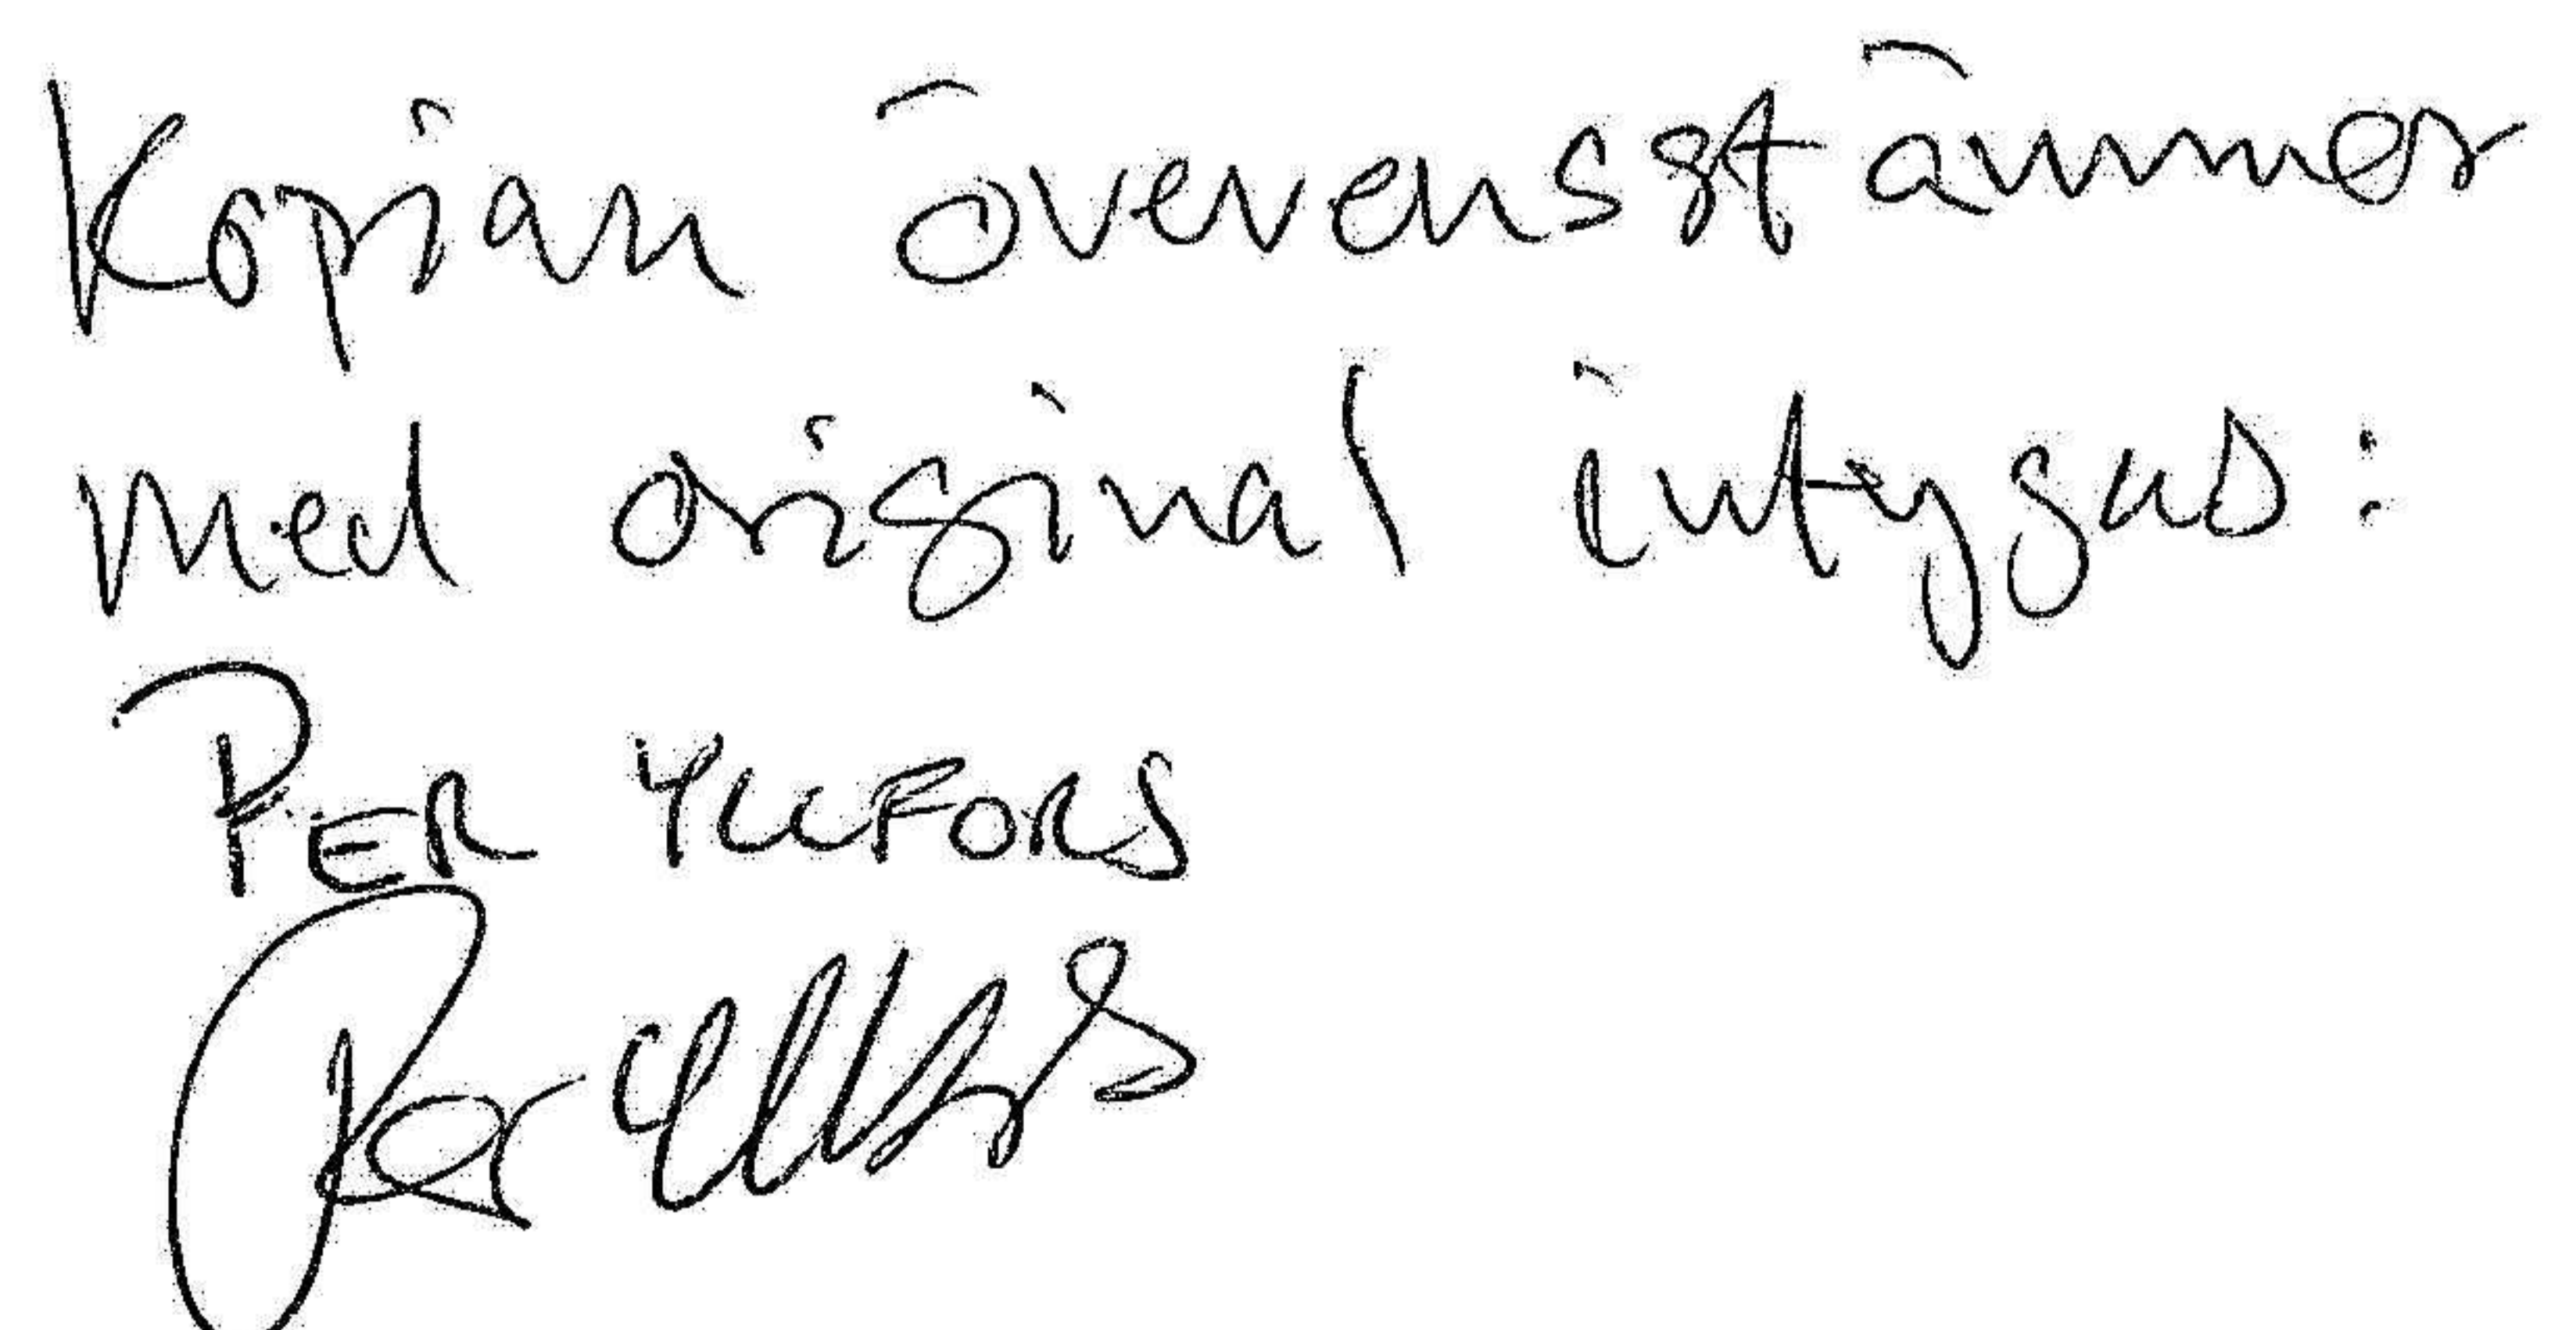 Kopian överensstämmer
med original intygas:
PER YLLFORS
Per Yllfors